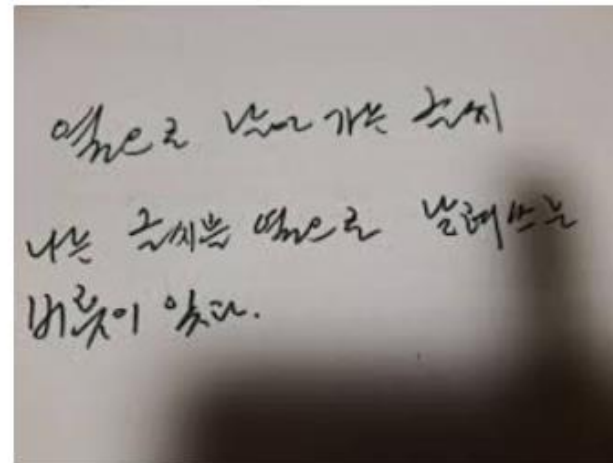 옆으로 날아 가는 글씨
나는 글씨를 옆으로 날려쓰는
버릇이 있다.